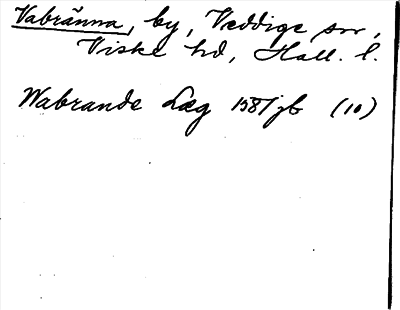 Vabränna, by, Veddige sn,
Viske hd, Hall. l.
Wabrande Læg 1581 jb (10)